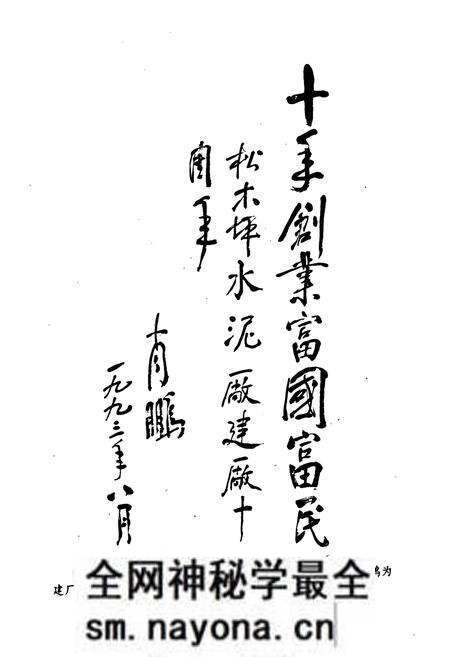 十年創業富國富民
松木坪水泥廠建廠十
周年
肖鵬
一九九三年八月
建厂
为
全网神秘学最全
sm.nayona.cn